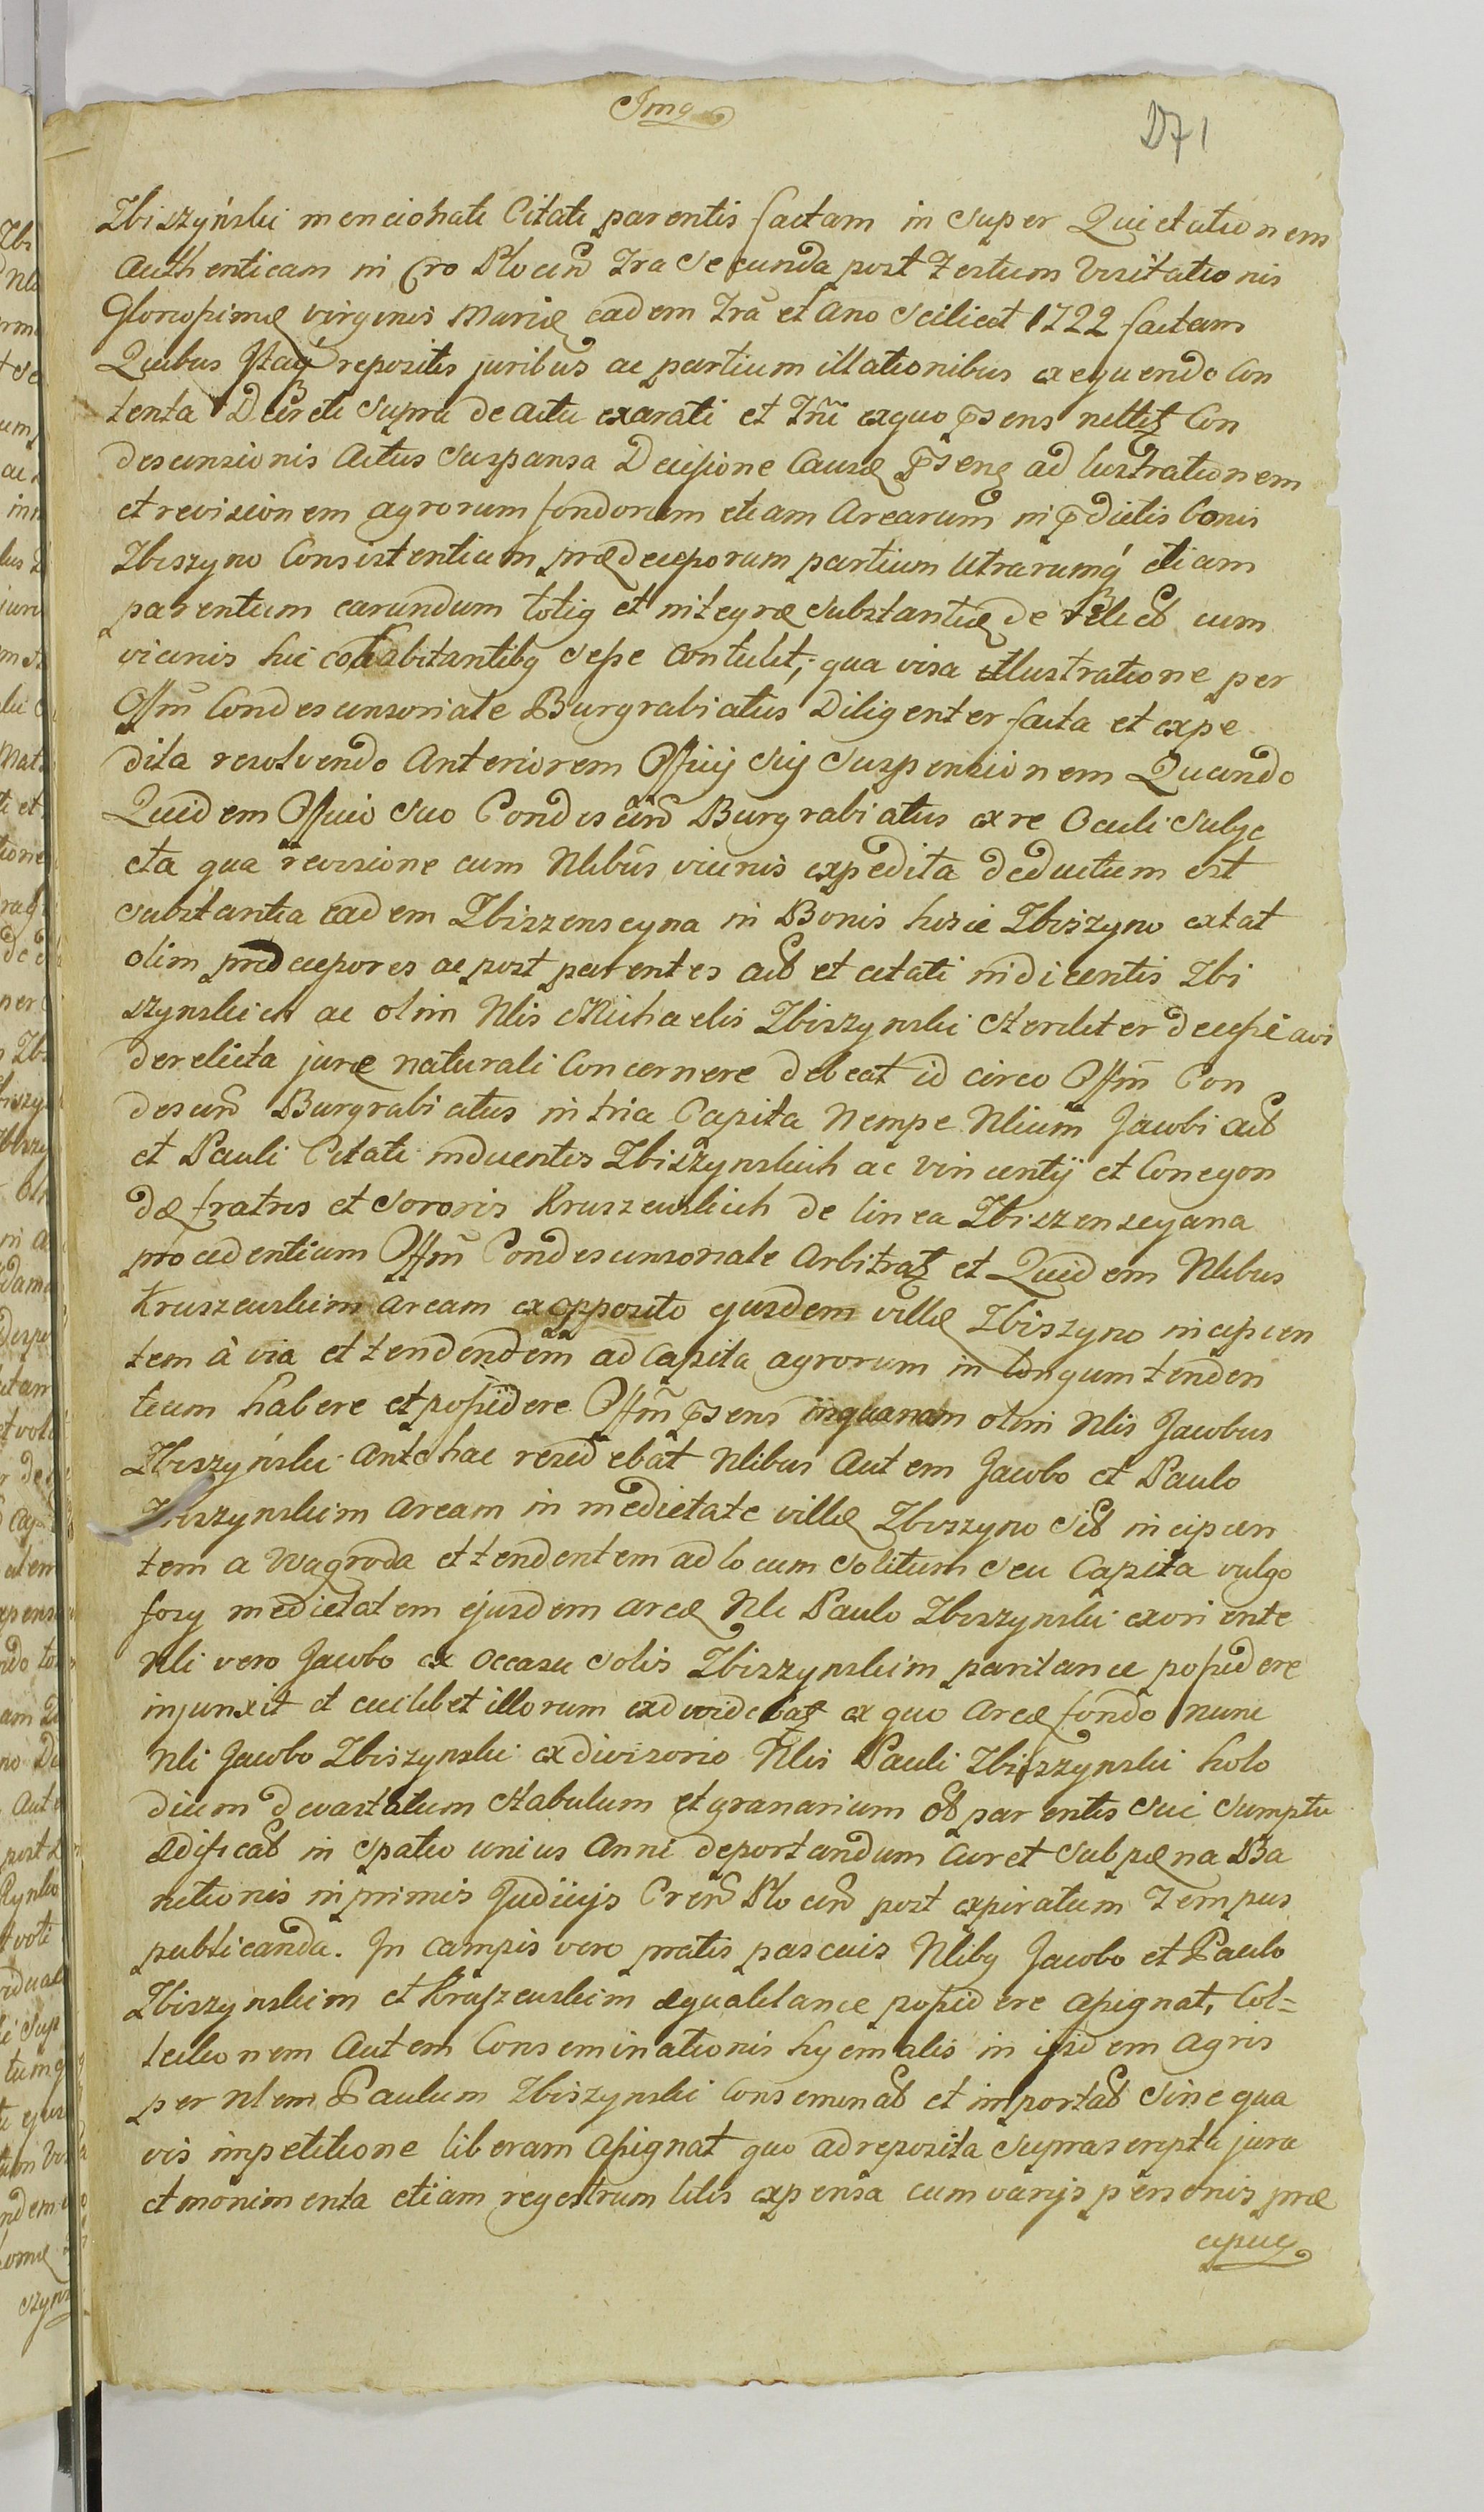 Img
Zbiszyński mencionati Citati parentis factam in super Quietationem
Authenticam in Cro Plocen̄ Fra Secunda post Festum Visitationis
Gloriosissimæ Virginis Mariæ eadem Fra et Ano Scilicet 1722 factam
Quibus Itaq́ repositis juribus ac partium illationibus exequendo Con
tenta Decreti Supra de actu exarati et exquo p̄sens Con
descensionis Actus Suspensa Decisione Causæ p̄sens ad lustrationem
et revisionem agrorum fondorum etiam Arearum in p̄dictis bonis
Zbiszyno Consistentium prædecessorum partium Utrarumq́ etiam
parentum earundum totiq et integræ Substantiæ de relict cum
vicinis hic cohabitantibq Sese Contulit; qua visa illustratione per
Offm̄ Condescensoriale Burgrabiatus Diligenter facta et expe
dita resolvendo Anteriorem Officij Sui Suspensionem Quando
Quidem Officio Suo Condescen̄ Burgrabiatus ex re Oculi Subje
cta qua revisione cum Nlibus vicinis expedita deductum est
Substantia eadem Zbiszenscyna in Bonis hisce Zbiszyno extat
olim prædecessores ac post parentes act et citati inducentis Zbi
szynskich ac olim Nlis Michaelis Zbiszynski Steriliter decessi avi
derelicta juræ naturali Concernere debeat id circo Offm̄ Con
descen̄ Burgrabiatus in tria Capita Nempe Nlium Jacobi act
et Pauli Citati inducentis Zbiszynskich ac Vincentij et Conegon
dæ fratris et Sororis Kruszewskich de linea Zbiszenscyana
procedentium Offm̄ Condescensoriale Arbitrat et Quidem Nlibus
Kruszewskim Aream ex opposito ejusdem villæ Zbiszyno incipien
tem à via et tendendem ad Capita agrorum in longum tenden
tium habere et possidere Offm̄ p̄sens inquanam olim Nlis Jacobus
Zbiszyński Antehac residebat Nlibus Autem Jacobo et Paulo
Zbiszynskim Aream in medietate villæ Zbiszyno Sit incipien
tem a Wagroda et tendentem ad locum Solitum Seu Capita vulgo
fosy medietatem ejusdem areæ Nli Paulo Zbiszynski ex oriente
Nli vero Jacobo ex Occasu Solis Zbiszynskim pari lance possidere
injunxit et cuilibet illorum ex quo Areæ fondo nunc
Nli Jacobo Zbiszynski ex divisorio Nlis Pauli Zbiszynski holo
dium devastatum Stabulum et granarium ob parentis Sui Sumptu
Ædificat in Spatio unius Anni deportandum Curet Sub pæna Ba
nitionis in primis Judicijs Cren̄ Plocen̄ post expiratum Tempus
publicanda. In campis vero pratis pascuis Nlibq Jacobo et Paulo
Zbiszynskim et Kruszewskim æquali lance possidere assignat, Col=
lectionem Autem Conseminationis hyemalis in ijsdem agris
per Nlem Paulum Zbiszynski Conseminat et importat Sine qua
vis impetitione liberam assignat quo ad reposita Suprascripta jura
et monimenta etiam regestrum litis expensa cum varijs personis præ
cipue